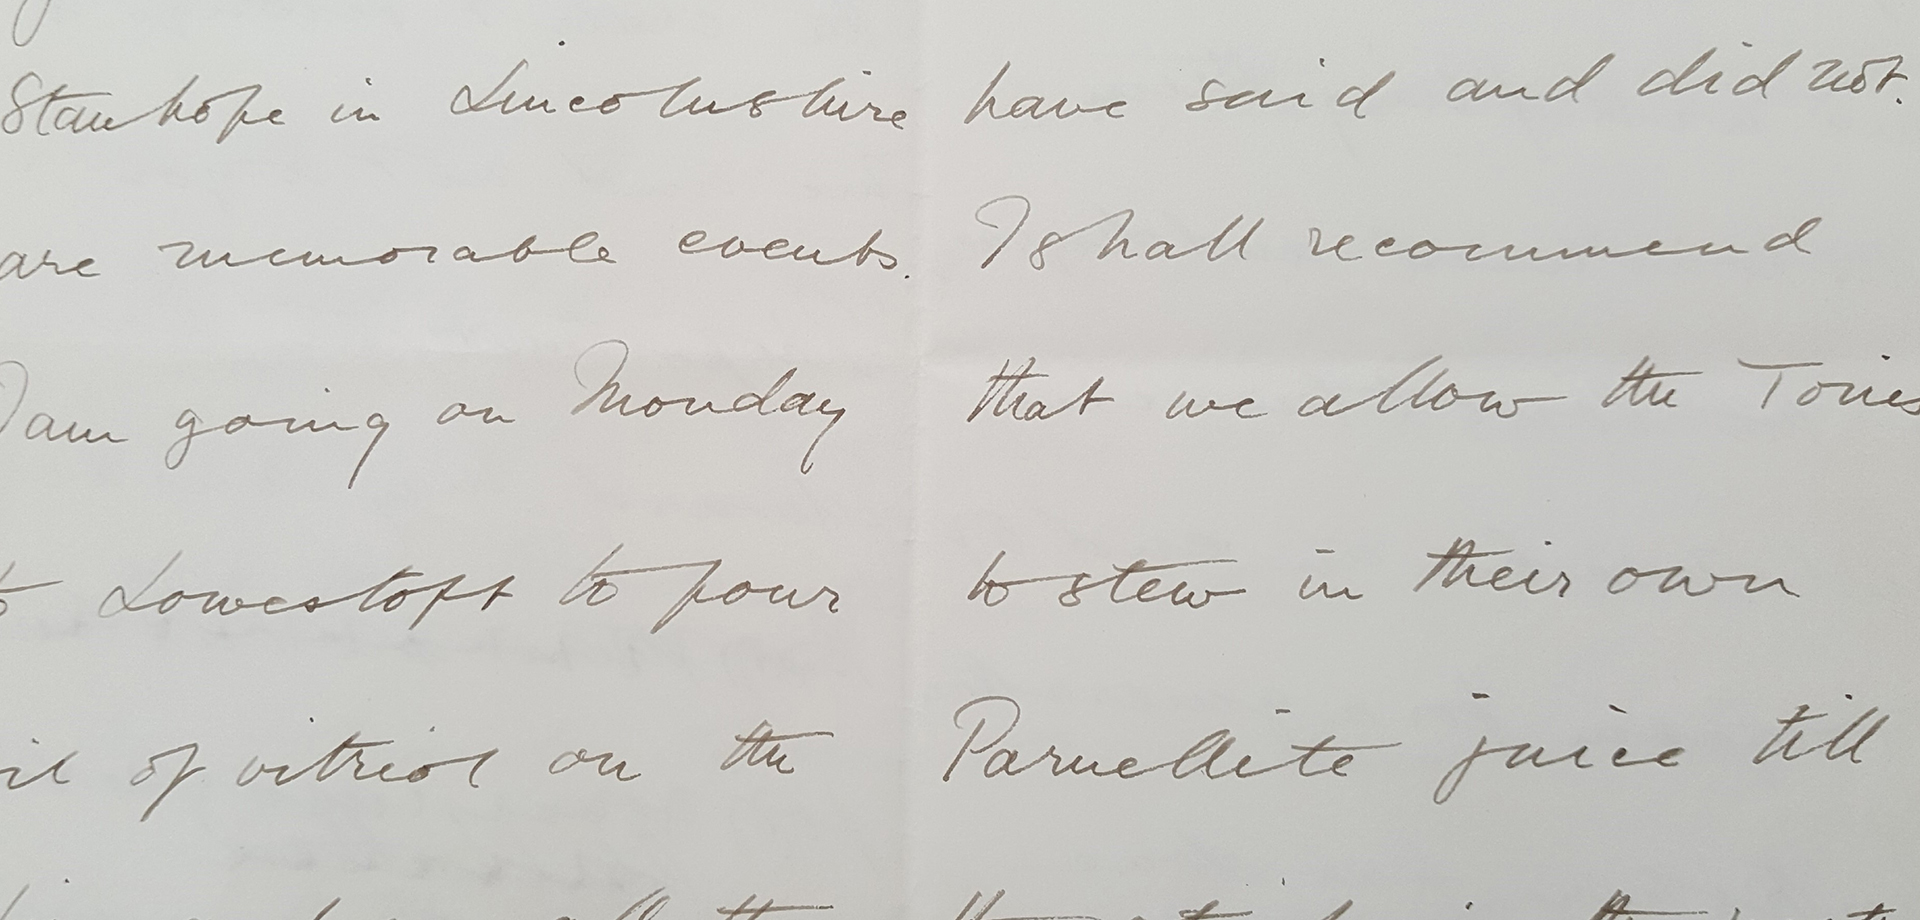 Stanhope in Lincolnshire
are memorable events.
I am going on Monday
to Lowestoft to pour
oil of vitriol on the
all the
have said and did not.
I shall recommend
that we allow the Tories
to stew in their own
Parnellite juice till